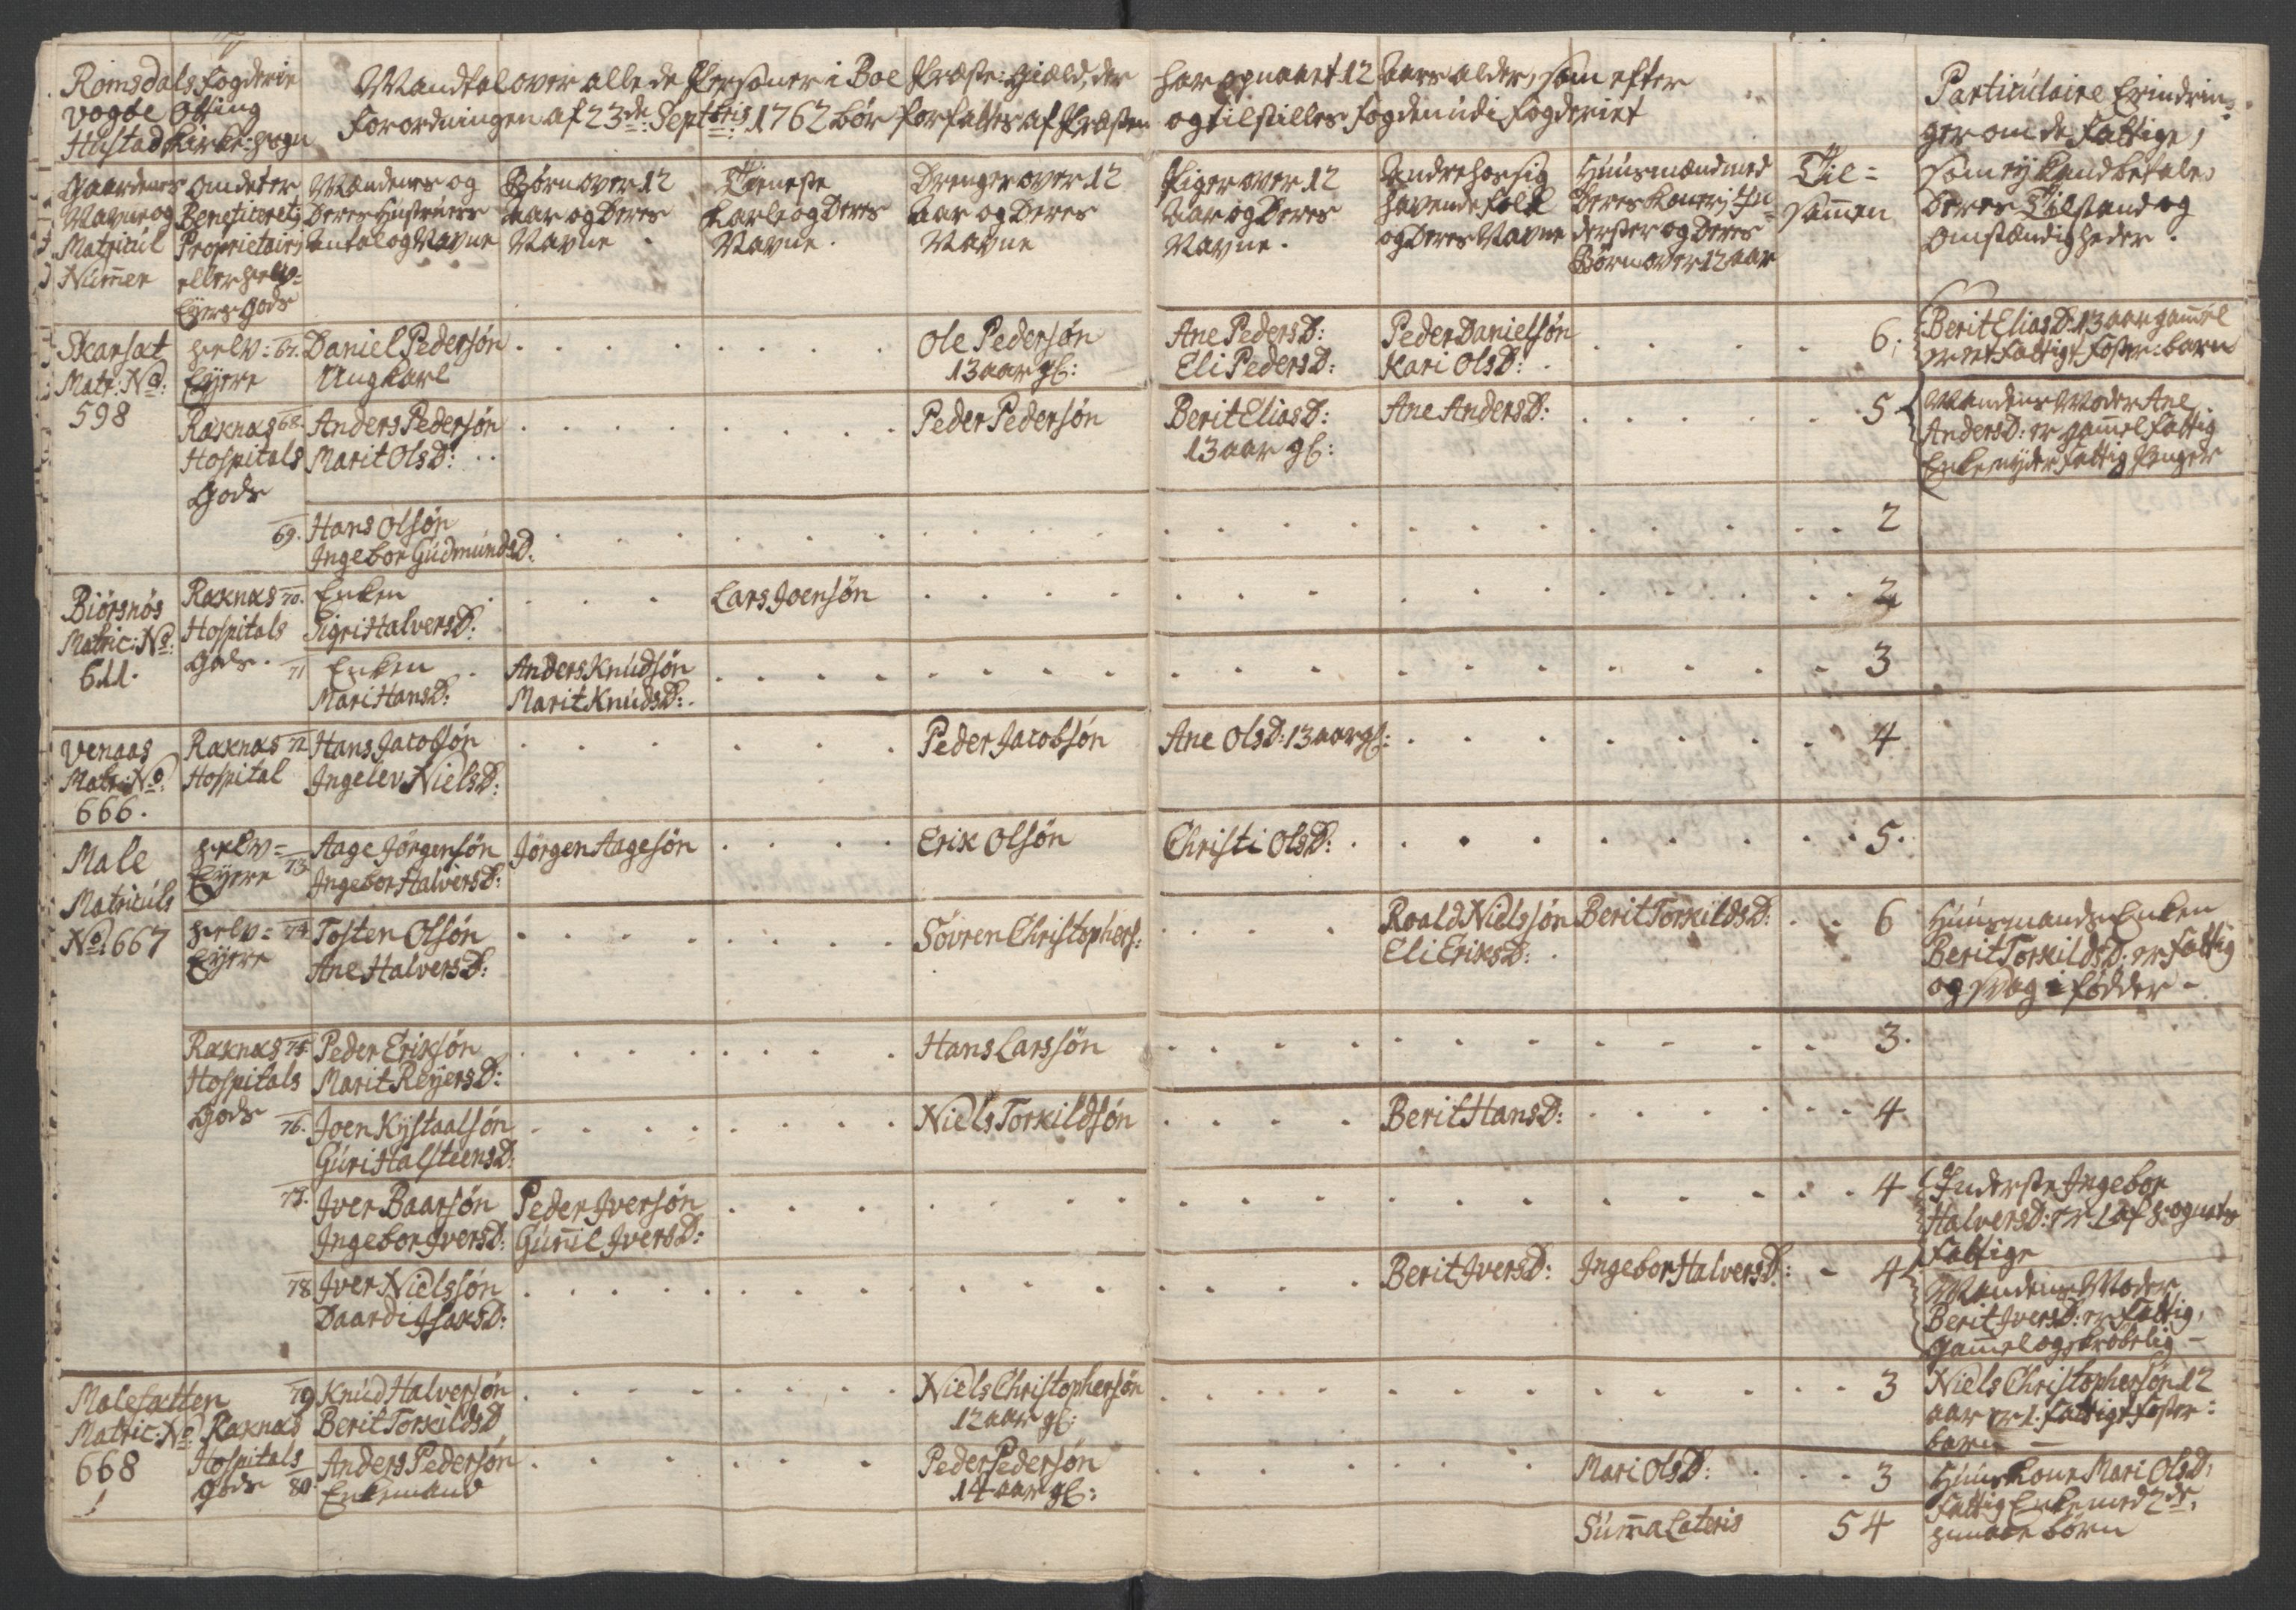 Romsdals Fogderie
Vogde Otting
Hustad Kirke-Sogn
Mandtal over alle de Personer i Boe Præste-Giæld, der har opnaaet 12 Aars alder, som efter
Forordningen af 23de Septbris 1762 bør forfattes af Præsten og tilstilles Fogden udi Fogderiet
Particulaire Erindrin-
ger om de Fattige,
som ey kand betale,
deres Tilstand og
Omstændigheder.
Gaardenes
Navne og
Matricul
Num̄er
Om det er
Beneficeret,
Proprietairi
eller Selv-
Eyer Gods
Mændenes og
deres Hustruers
Antal og Navne
Børn over 12
Aar og deres
Navne
Tieneste
Karle og deres
Navne.
Drenge over 12
Aar og deres
Navne
Piger over 12
Aar og deres
Navne.
Andre hos sig
havende Folk
og deres Navne
Huusmænd med
deres Koner, In-
derster og deres
Børn over 12 aar
Til-
sam̄en
Skarsæt
Matr: No:
598
Selv-
Eyere
67. Daniel Pedersøn
Ungkarl
Ole Pedersøn
13 aar gl:
Ane PedersD:
Eli PedersD:
Peder Danielsøn
Kari OlsD:
6.
Berit EliasD: 13 aar gam̄el
er et fattigt Foster-barn
Ræknæs
Hospitals
Gods
68. Anders Pedersøn
Marit OlsD:
Peder Pedersøn
Berit EliasD:
13 aar gl:
Ane AndersD:
5
Mandens Moder Ane
AndersD: er gam̄el fattig
Enke nyder Fattig Penger
69. Hans Olsøn
Ingebor GudmundsD:
2
Biørsnøs
Matric: No:
611.
Ræknæs
Hospitals
Gods.
70. Enken
Sigri HalversD:
Lars Joensøn
2
71 Enken
Mari HansD:
Anders Knudsøn
Marit KnudsD:
3
Venaas
Matr: No:
666.
Ræknæs
Hospital
72 Hans Jacobsøn
Ingelev NielsD:
Peder Jacobsøn
Ane OlsD: 13 aar gl:
4
Male
Matriculs
No: 667
Selv-
Eyere
73. Aage Jørgensøn
Ingebor HalversD:
Jørgen Aagesøn
Erik Olsøn
Christi OlsD:
5.
Selv-
Eyere
74. Tosten Olsøn
Ane HalversD:
Søvren Christophers:
Roald Nielssøn
Eli EriksD:
Berit TorkildsD:
6
Huusmands Enken
Berit TorkildsD: er fattig
og svag i Fødder -
Ræknæs
Hospitals
Gods
75. Peder Eriksøn
Marit ReyersD:
Hans Larssøn
3.
76. Joen Kystaalsøn
Guri HalsteensD:
Niels Torkildsøn
Berit HansD:
4
77. Iver Baarsøn
Ingebor IversD:
Peder Iversøn
Gun̄il IversD:
4
Inderste Ingebor
HalversD: er 1 af Sognets
Fattige
78 Iver Nielssøn
Baardi IsaksD:
Berit IversD:
Ingebor HalversD:
4
Mandens Moder
Berit IversD: er fattig,
gam̄el og skrøbelig -
Malesætten
Matric: No:
668
Ræknæs
Hospitals
Gods
79 Knud Halversøn
Berit TorkildsD
Niels Christophersøn
12 aar gl:
3
Niels Christophersøn 12
aar er 1. fattigt Foster-
barn
80. Anders Pedersøn
Enkemand
Peder Pedersøn
14 aar gl:
Mari OlsD:
3
Huuskone Mari OlsD:
fattig Enke med 2de
smaae børn
Sum̄a Lateris
54